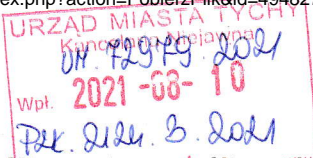 ex.php?action=PobierzPlik&id=49482
URZĄD MIASTA TYCHY
Kancelaria Niejawna
UM. 72979.2021
Wpł. 2021 -08- 10
PZK. 2124. 3. 2021